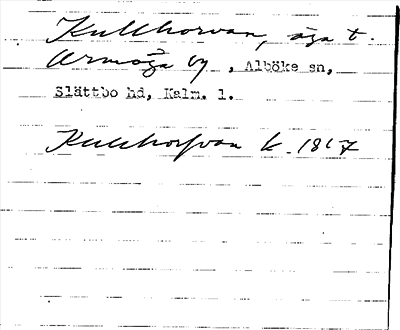 Kullhorvan, äga t.
Armöga by, Alböke sn,
Slättbo hd, Kalm. l.
Kullhorfvan k. 1817